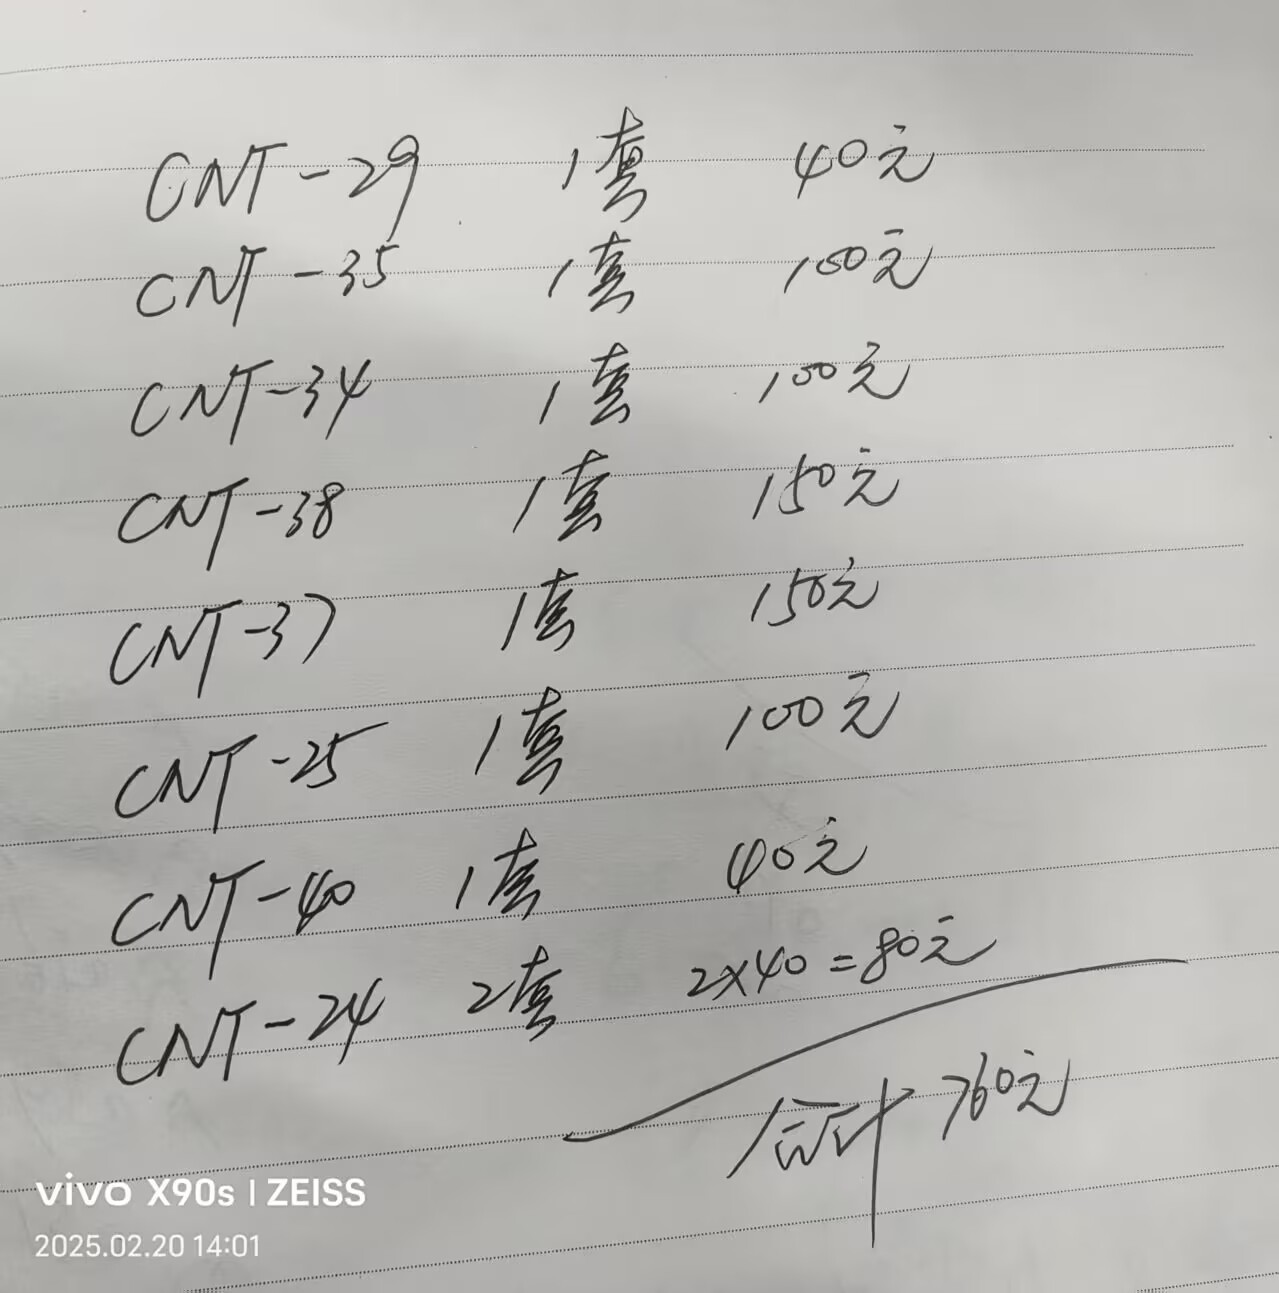 CNT-29 1套 40元
CNT-35 1套 100元
CNT-34 1套 100元
CNT-38 1套 150元
CNT-37 1套 150元
CNT-25 1套 100元
CNT-40 1套 40元
CNT-24 2套 2×40=80元
合计 760元
vivo X90s | ZEISS
2025.02.20 14:01